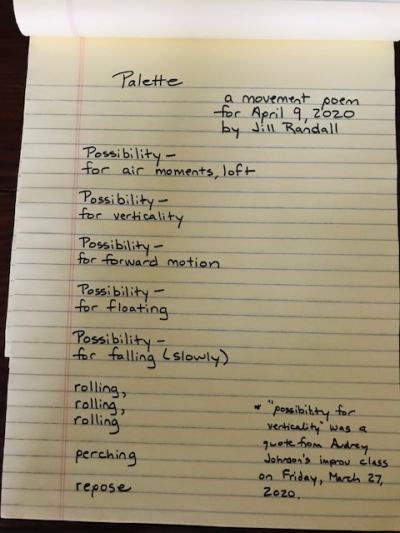 Palette
a movement poem
for April 9, 2020
by Jill Randall
Possibility –
for air moments, loft
Possibility –
for verticality
Possibility –
for forward motion
Possibility –
for floating
Possibility –
for falling (slowly)
rolling,
rolling,
rolling
perching
repose
* "possibility for
verticality" was a
quote from Audrey
Johnson's improv class
on Friday, March 27,
2020.